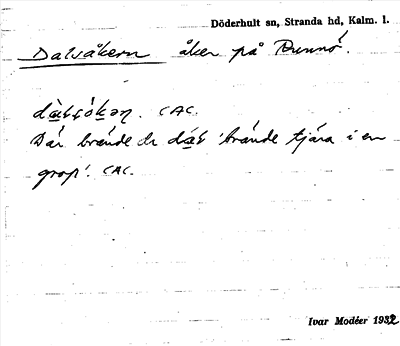 Döderhult sn, Stranda hd, Kalm. l.
Dalsåkern åker på Runnö.
CAC.
Där brände de brände tjära i en
grop. CAC.
Ivar Modéer 1932